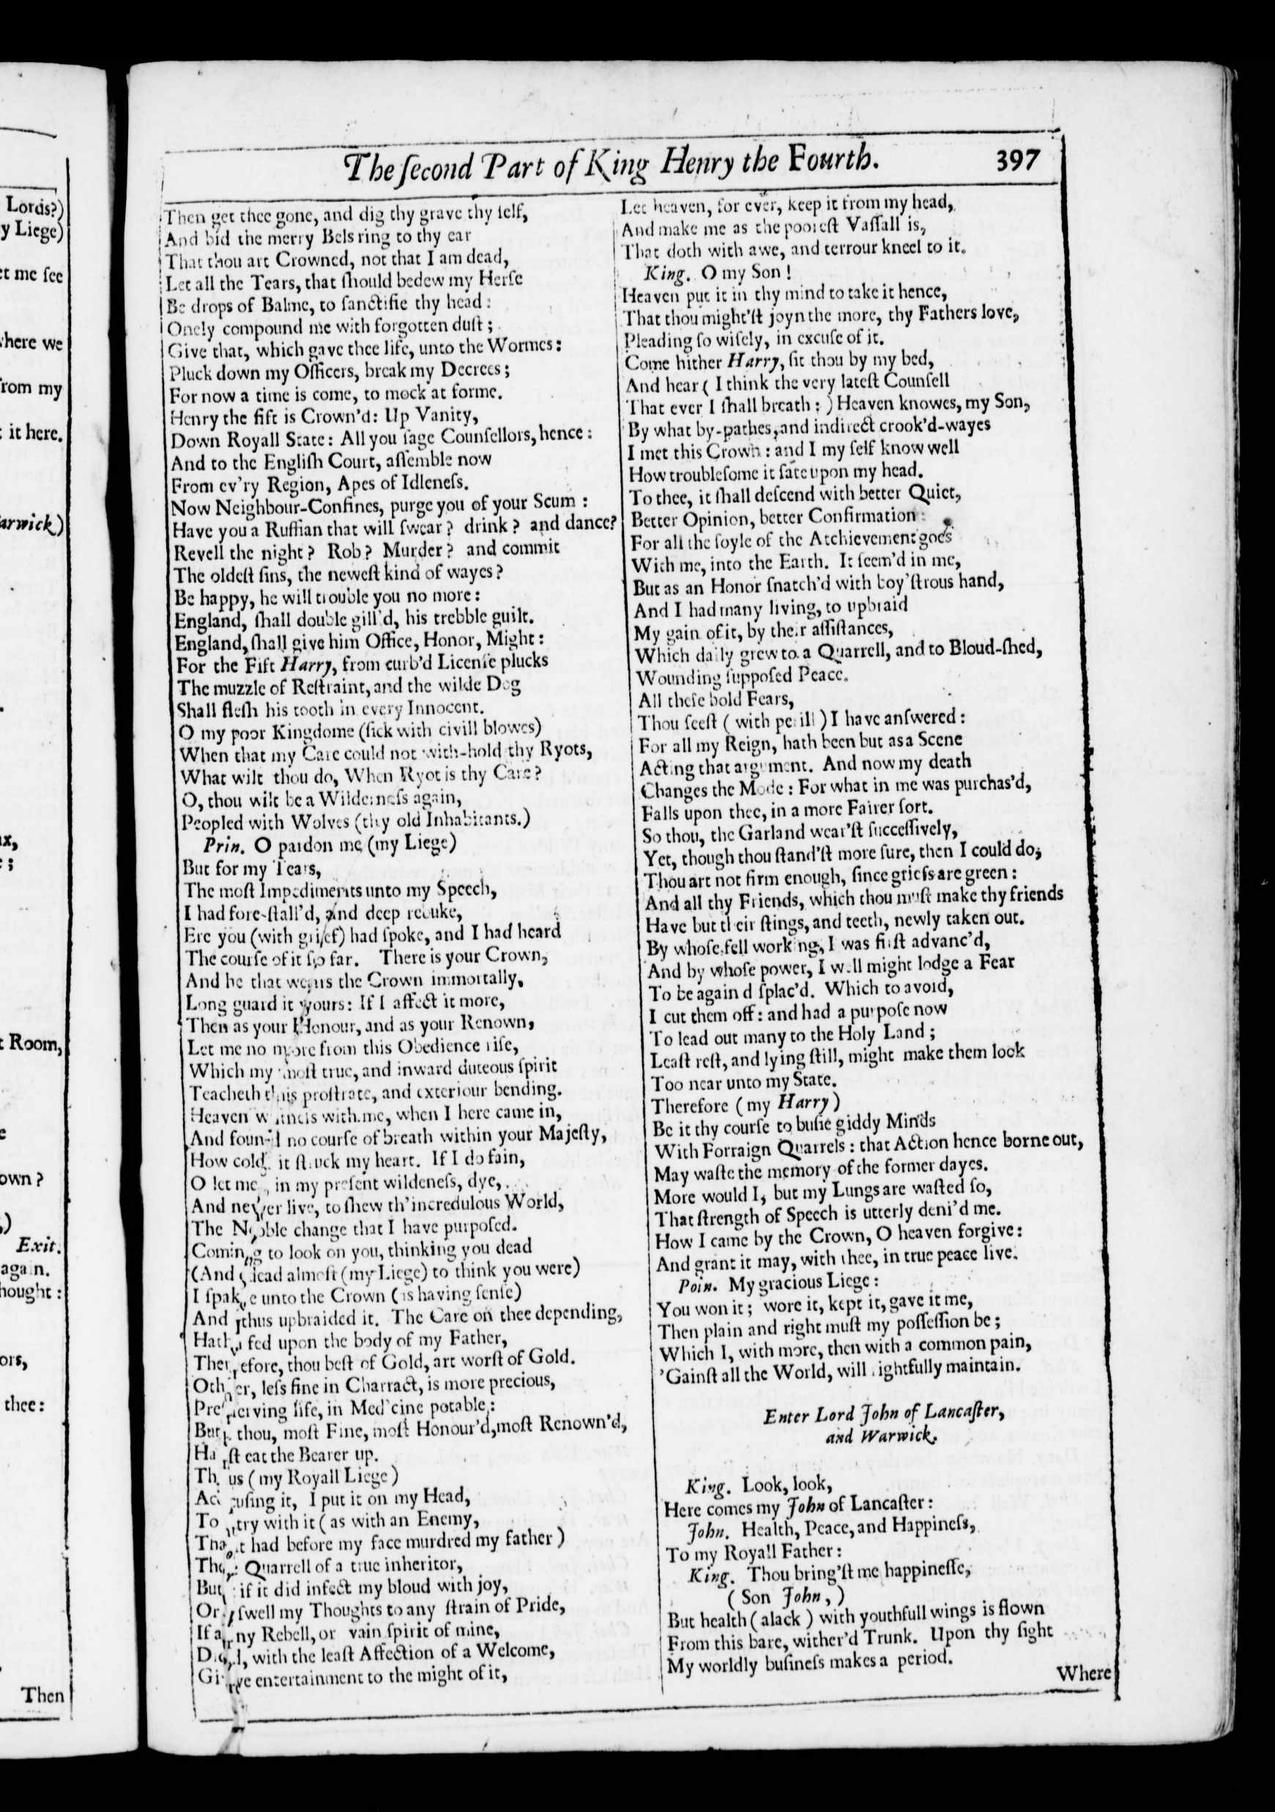 Lords?)
y Liege)
et me ſee
here we
from my
it here.
arwick)
t Room,
own?
Exit.
again.
hought:
ors,
thee:
Then
The ſecond Part of King Henry the Fourth. 397
Then get thee gone, and dig thy grave thy ſelf,
And bid the merry Bels ring to thy ear
That thou art Crowned, not that I am dead,
Let all the Tears, that ſhould bedew my Herſe
Be drops of Balme, to ſanctifie thy head:
Onely compound me with forgotten duſt;
Give that, which gave thee life, unto the Wormes:
Pluck down my Officers, break my Decrees;
For now a time is come, to mock at forme.
Henry the fift is Crown'd: Up Vanity,
Down Royall State: All you ſage Counſellors, hence:
And to the Engliſh Court, aſſemble now
From ev'ry Region, Apes of Idleneſs.
Now Neighbour-Confines, purge you of your Scum:
Have you a Ruffian that will ſwear? drink? and dance?
Revell the night? Rob? Murder? and commit
The oldeſt ſins, the neweſt kind of wayes?
Be happy, he will trouble you no more:
England, ſhall double gill'd, his trebble guilt.
England, ſhall give him Office, Honor, Might:
For the Fift Harry, from curb'd Licenſe plucks
The muzzle of Reſtraint, and the wilde Dog
Shall fleſh his tooth in every Innocent.
O my poor Kingdome (ſick with civill blowes)
When that my Care could not with-hold thy Ryots,
What wilt thou do, When Ryot is thy Care?
O, thou wilt be a Wilderneſs again,
Peopled with Wolves (thy old Inhabitants.)
Prin. O pardon me (my Liege)
But for my Tears,
The moſt Impediments unto my Speech,
I had fore-ſtall'd, and deep rebuke,
Ere you (with grief) had ſpoke, and I had heard
The courſe of it ſo far. There is your Crown,
And he that wears the Crown immortally,
Long guard it yours: If I affect it more,
Then as your Honour, and as your Renown,
Let me no more from this Obedience riſe,
Which my moſt true, and inward duteous ſpirit
Teacheth this proſtrate, and exteriour bending.
Heaven witneſs with me, when I here came in,
And found no courſe of breath within your Majeſty,
How cold it ſtruck my heart. If I do fain,
O let me, in my preſent wildeneſs, dye,
And never live, to ſhew th'incredulous World,
The Noble change that I have purpoſed.
Coming to look on you, thinking you dead
(And dead almoſt (my Liege) to think you were)
I ſpake unto the Crown (as having ſenſe)
And thus upbraided it. The Care on thee depending,
Hath fed upon the body of my Father,
Therefore, thou beſt of Gold, art worſt of Gold.
Other, leſs fine in Charract, is more precious,
Preſerving life, in Med'cine potable:
But thou, moſt Fine, moſt Honour'd, moſt Renown'd,
Haſt eat the Bearer up.
Thus (my Royall Liege)
Accuſing it, I put it on my Head,
To try with it (as with an Enemy,
That had before my face murdred my father)
The Quarrell of a true inheritor,
But if it did infect my bloud with joy,
Or ſwell my Thoughts to any ſtrain of Pride,
If any Rebell, or vain ſpirit of mine,
Did, with the leaſt Affection of a Welcome,
Give entertainment to the might of it,
Let heaven, for ever, keep it from my head,
And make me as the pooreſt Vaſſall is,
That doth with awe, and terrour kneel to it.
King. O my Son!
Heaven put it in thy mind to take it hence,
That thou might'ſt joyn the more, thy Fathers love,
Pleading ſo wiſely, in excuſe of it.
Come hither Harry, ſit thou by my bed,
And hear (I think the very lateſt Counſell
That ever I ſhall breath:) Heaven knowes, my Son,
By what by-pathes, and indirect crook'd-wayes
I met this Crown: and I my ſelf know well
How troubleſome it ſate upon my head.
To thee, it ſhall deſcend with better Quiet,
Better Opinion, better Confirmation:
For all the ſoyle of the Atchievement goes
With me, into the Earth. It ſeem'd in me,
But as an Honor ſnatch'd with boy'ſtrous hand,
And I had many living, to upbraid
My gain of it, by their aſſiſtances,
Which daily grew to a Quarrell, and to Bloud-ſhed,
Wounding ſuppoſed Peace.
All theſe bold Fears,
Thou ſeeſt (with perill) I have anſwered:
For all my Reign, hath been but as a Scene
Acting that argument. And now my death
Changes the Mode: For what in me was purchas'd,
Falls upon thee, in a more Fairer ſort.
So thou, the Garland wear'ſt ſucceſſively,
Yet, though thou ſtand'ſt more ſure, then I could do,
Thou art not firm enough, ſince griefs are green:
And all thy Friends, which thou muſt make thy friends
Have but their ſtings, and teeth, newly taken out.
By whoſe fell working, I was firſt advanc'd,
And by whoſe power, I well might lodge a Fear
To be again diſplac'd. Which to avoid,
I cut them off: and had a purpoſe now
To lead out many to the Holy Land;
Leaſt reſt, and lying ſtill, might make them look
Too near unto my State.
Therefore (my Harry)
Be it thy courſe to buſie giddy Minds
With Forraign Quarrels: that Action hence borne out,
May waſte the memory of the former dayes.
More would I, but my Lungs are waſted ſo,
That ſtrength of Speech is utterly deni'd me.
How I came by the Crown, O heaven forgive:
And grant it may, with thee, in true peace live.
Poin. My gracious Liege:
You won it; wore it, kept it, gave it me,
Then plain and right muſt my poſſeſſion be;
Which I, with more, then with a common pain,
'Gainſt all the World, will rightfully maintain.
Enter Lord John of Lancaſter,
and Warwick.
King. Look, look,
Here comes my John of Lancaſter:
John. Health, Peace, and Happineſs,
To my Royall Father:
King. Thou bring'ſt me happineſſe,
(Son John,)
But health (alack) with youthfull wings is flown
From this bare, wither'd Trunk. Upon thy ſight
My worldly buſineſs makes a period.
Where